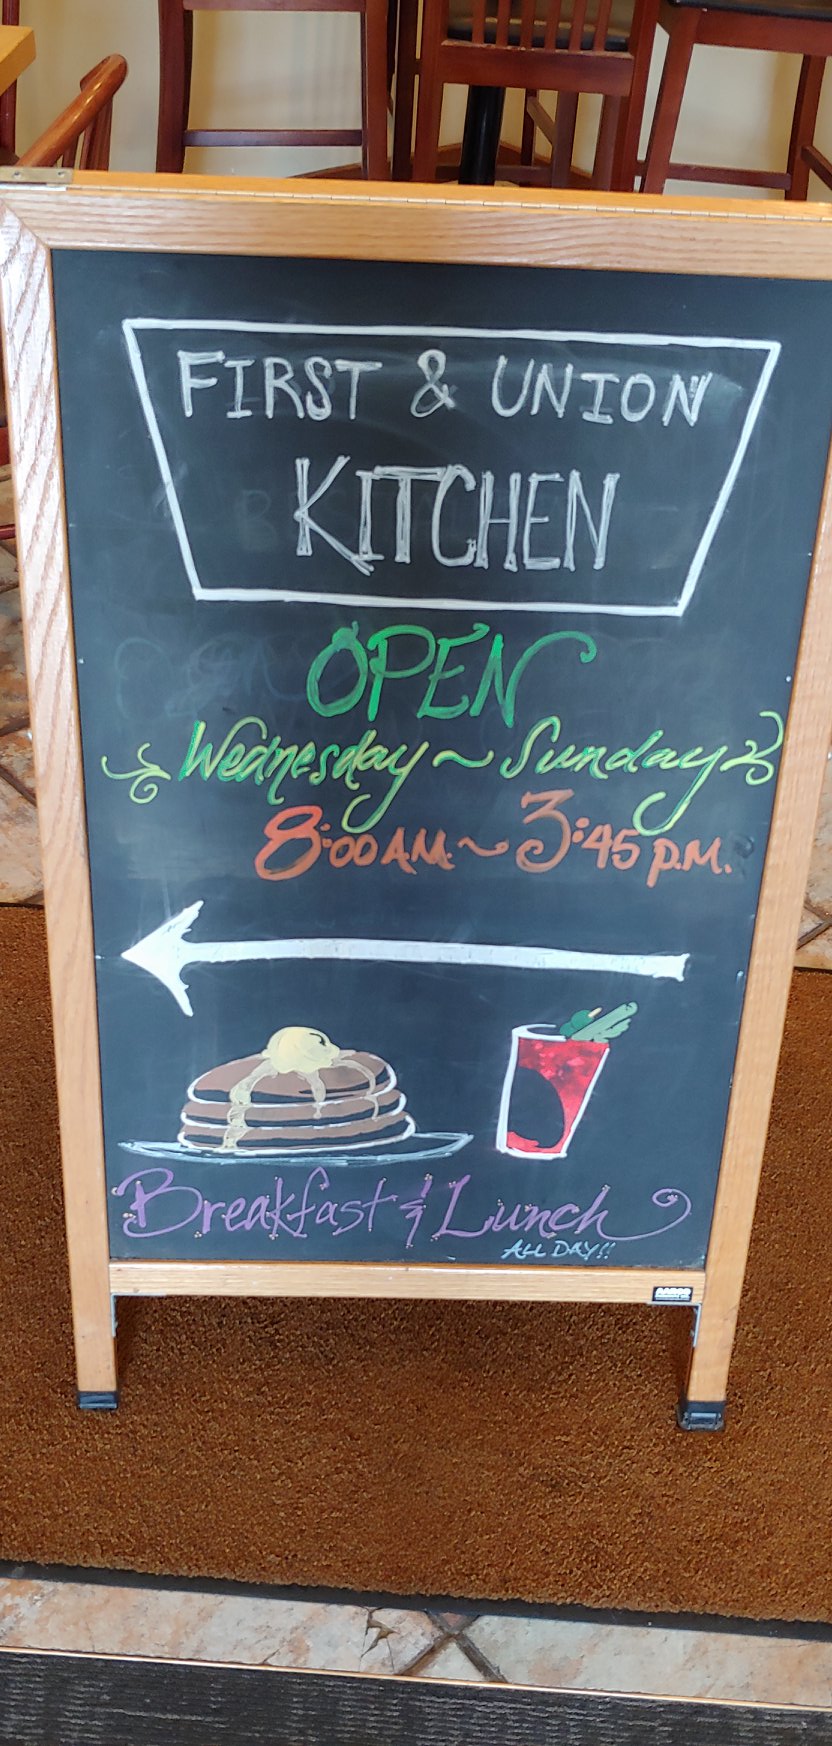 FIRST & UNION
KITCHEN
OPEN
Wednesday ~ Sunday
8:00 A.M. ~ 3:45 P.M.
Breakfast & Lunch
ALL DAY!!